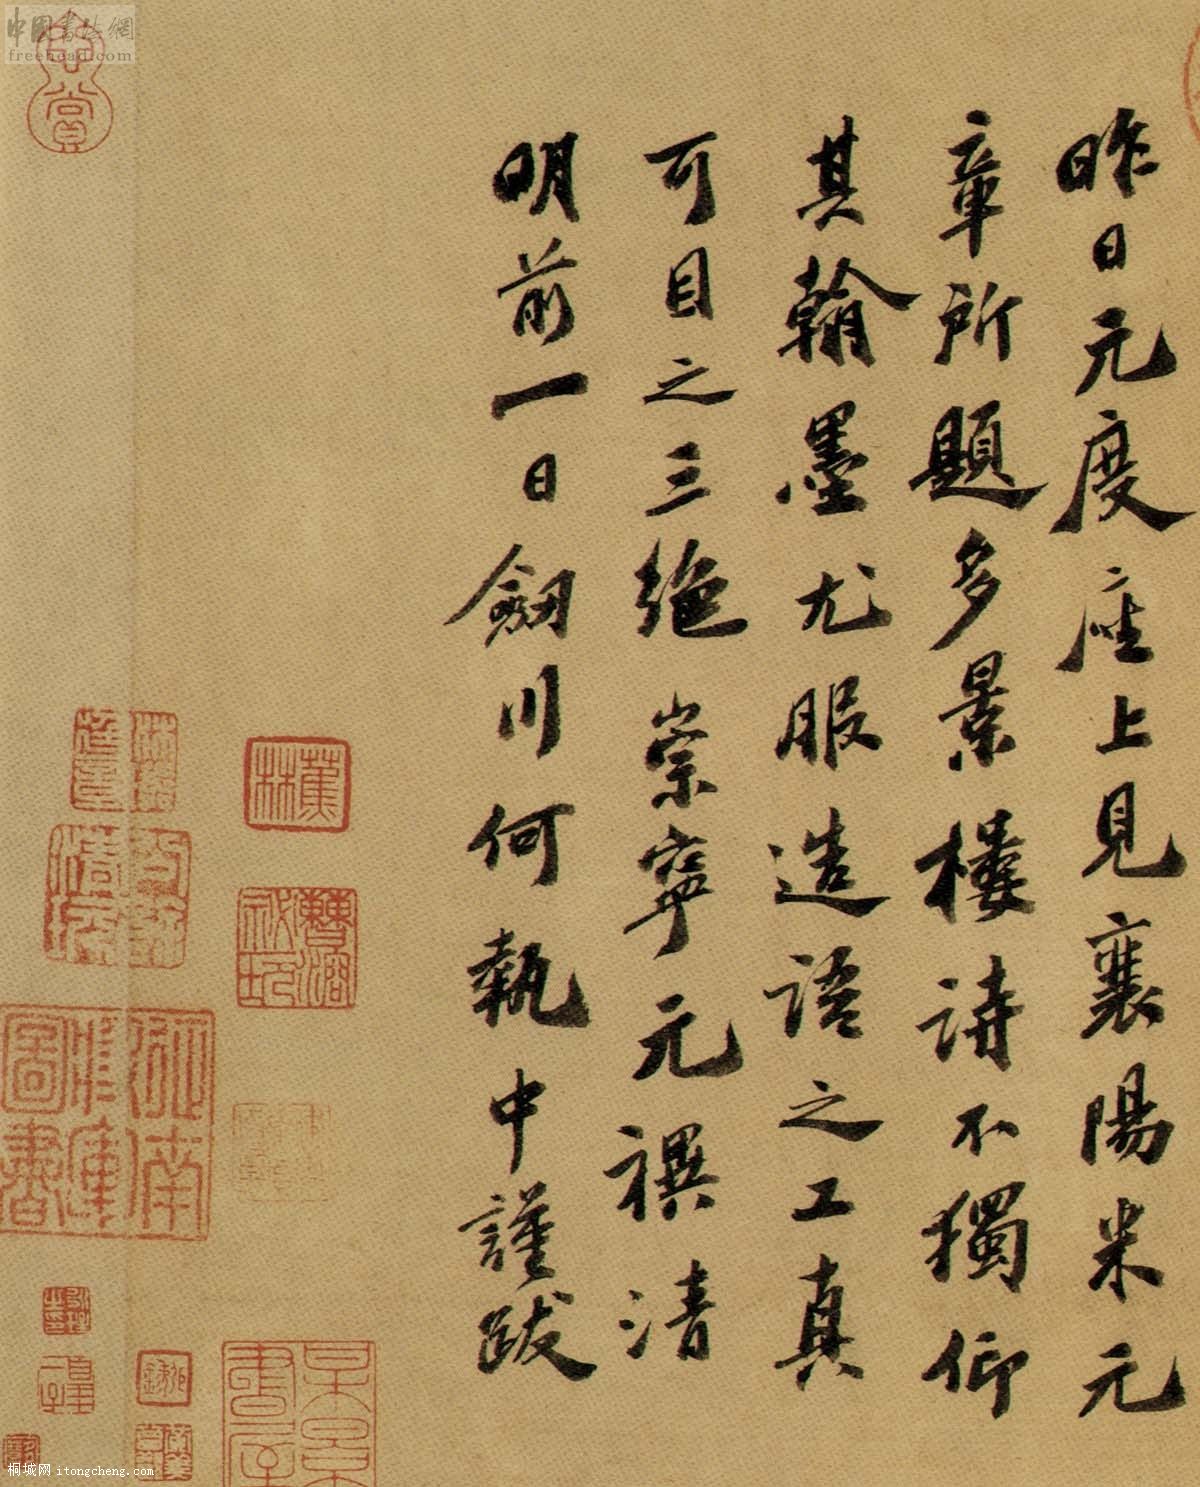 昨日元度座上見襄陽米元
章所題多景樓詩不獨仰
其翰墨尤服造語之工真
可目之三絶崇寧元禩清
明前一日劒川何執中謹跋
蕉林
曹溶
中國書法網
freehead.com
桐城网 itongcheng.com